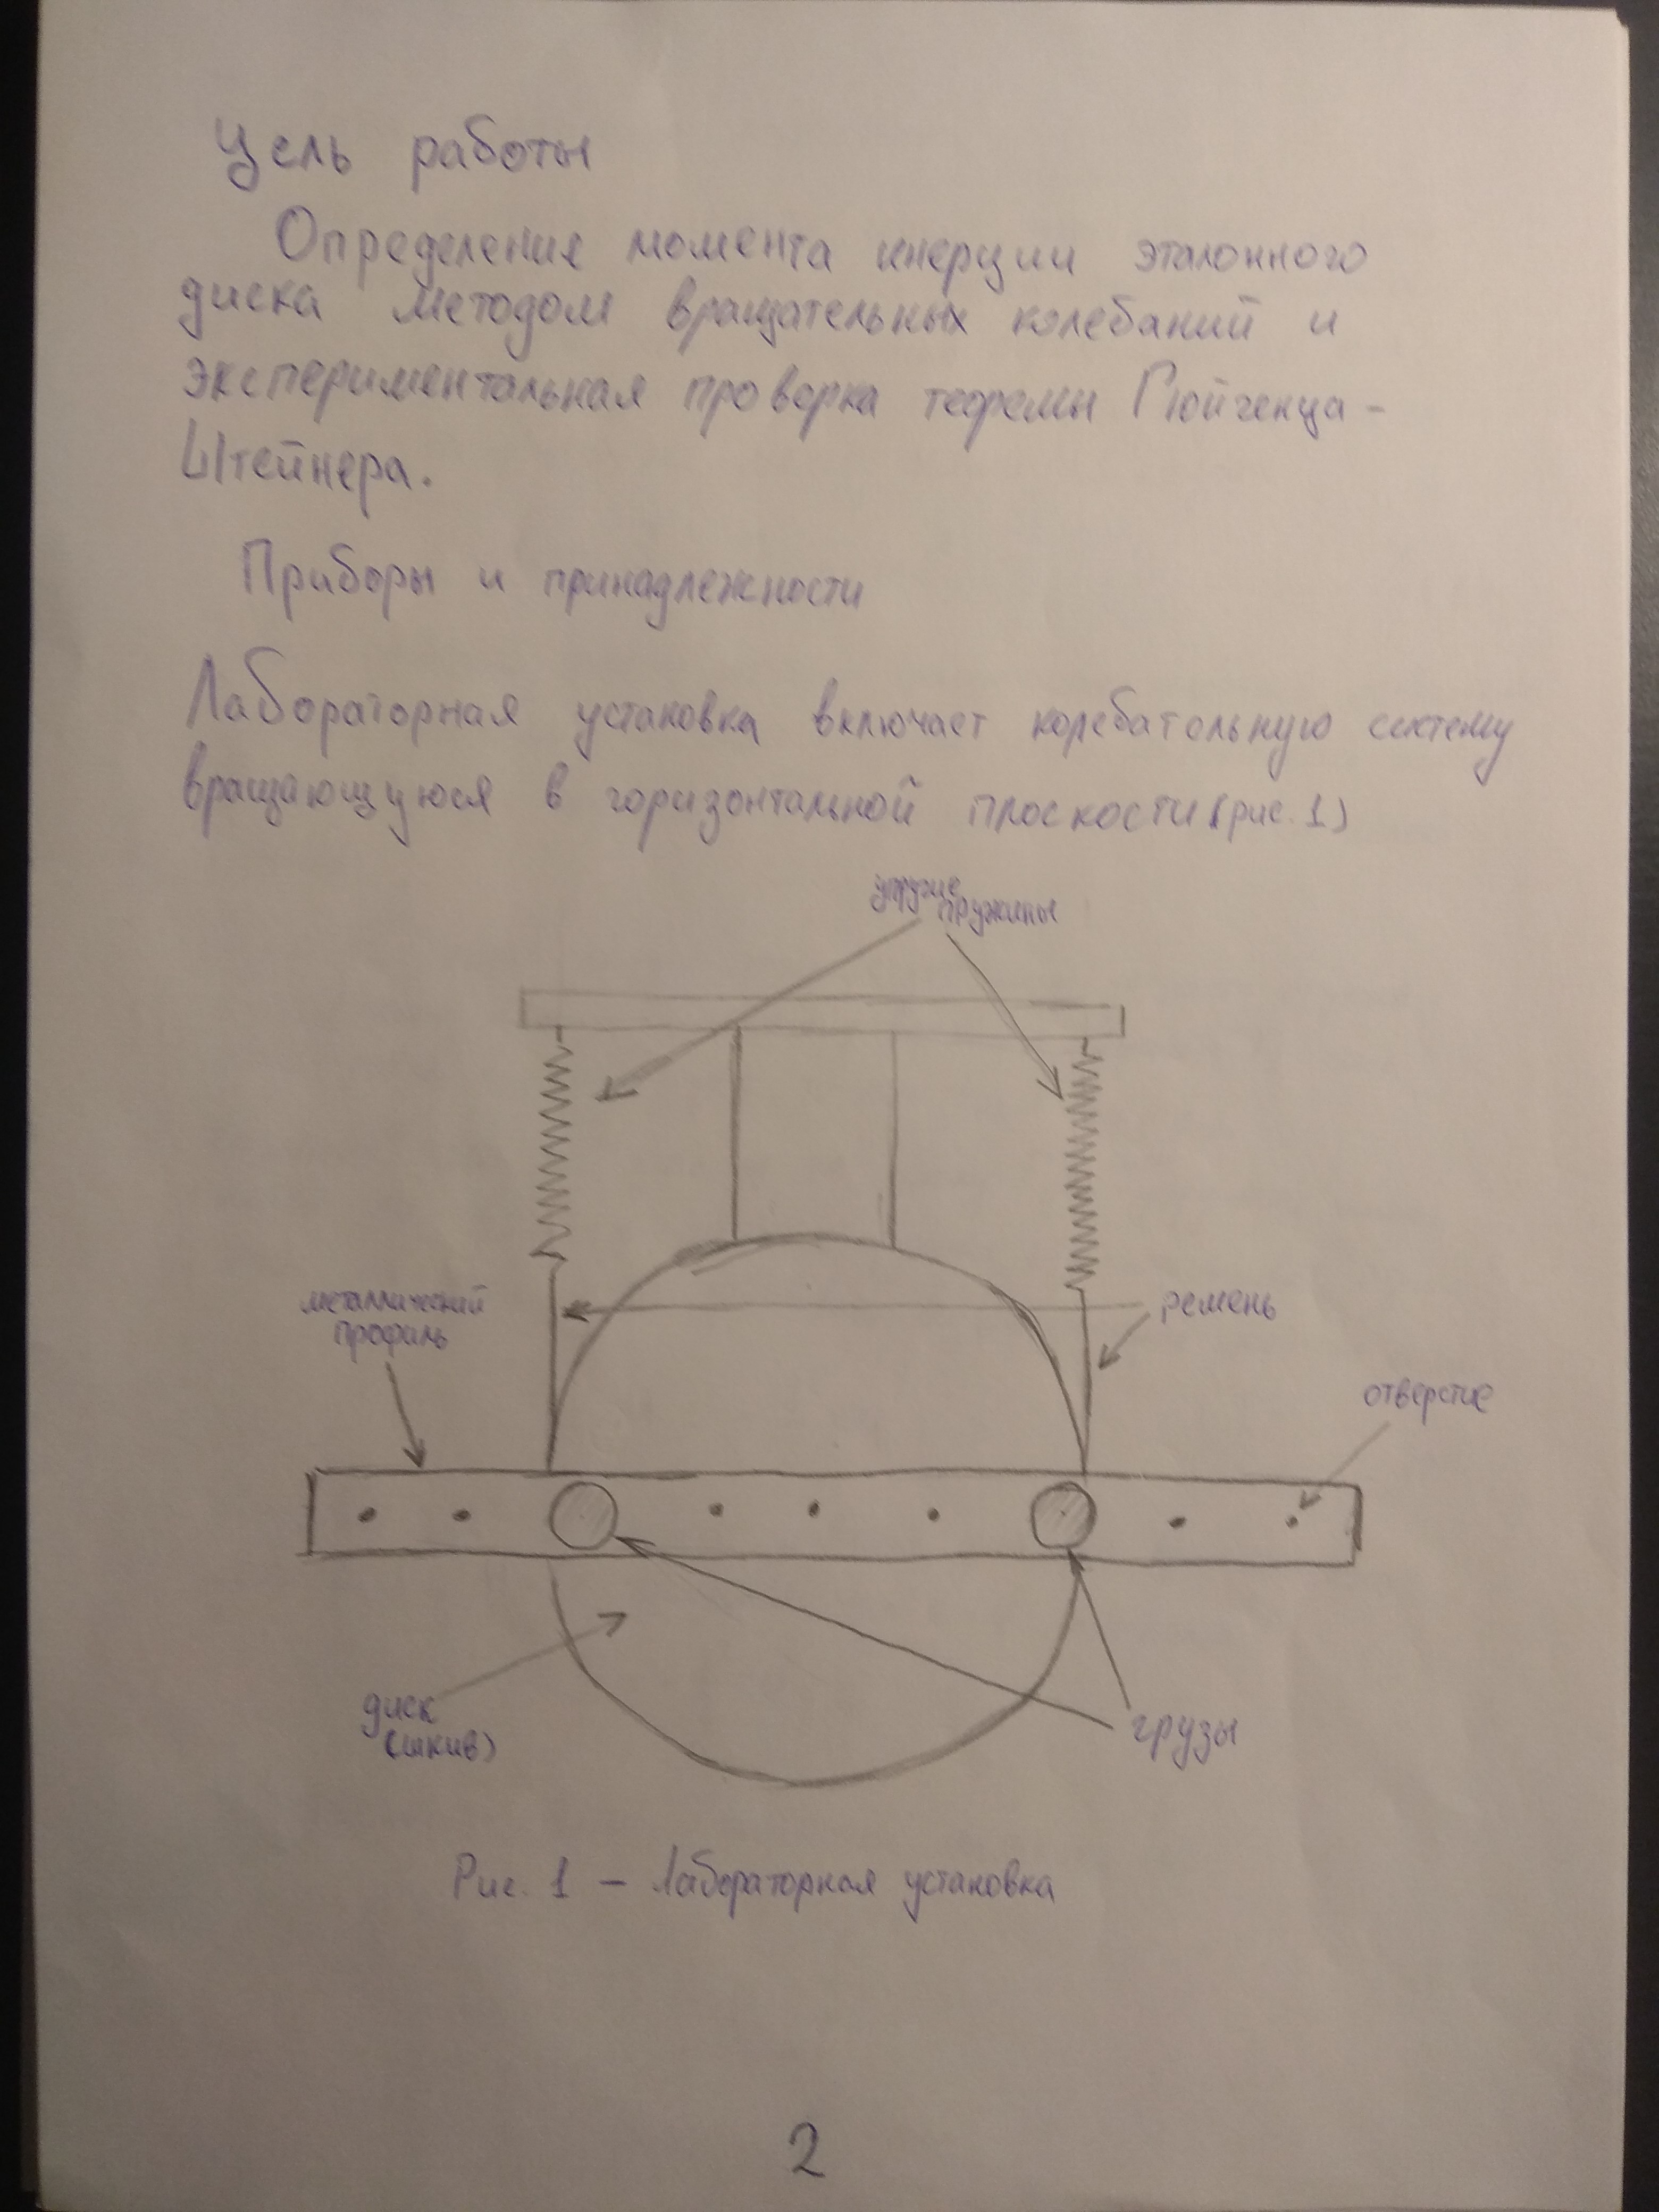 Цель работы
Определения момента инерции эталонного
диска методом вращательных колебаний и
экспериментальная проверка теоремы Гюйгенца-
Штейнера.
Приборы и принадлежности
Лабораторная установка включает колебательную систему
вращающуюся в горизонтальной плоскости (рис. 1)
упругие
пружины
металлический
профиль
ремень
отверстие
диск
(шкив)
грузы
Рис. 1 – Лабораторная установка
2